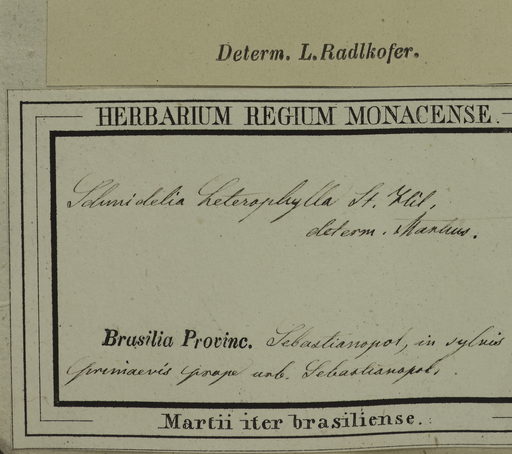 Determ. L. Radlkofer.
HERBARIUM REGIUM MONACENSE.
Schmidelia heterophylla St. Hil.
determ. Martius.
Brasilia Provinc. Sebastianopol, in sylvis
primaevis prope urb. Sebastianopol.
Martii iter brasiliense.